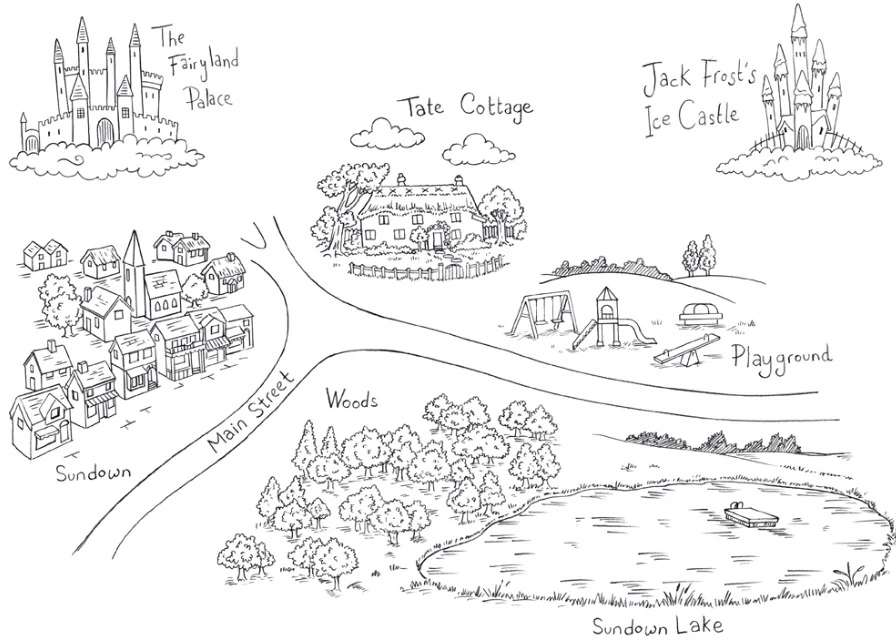 The
Fairyland
Palace
Jack Frost's
Ice Castle
Tate Cottage
Playground
Main Street
Woods
Sundown
Sundown Lake